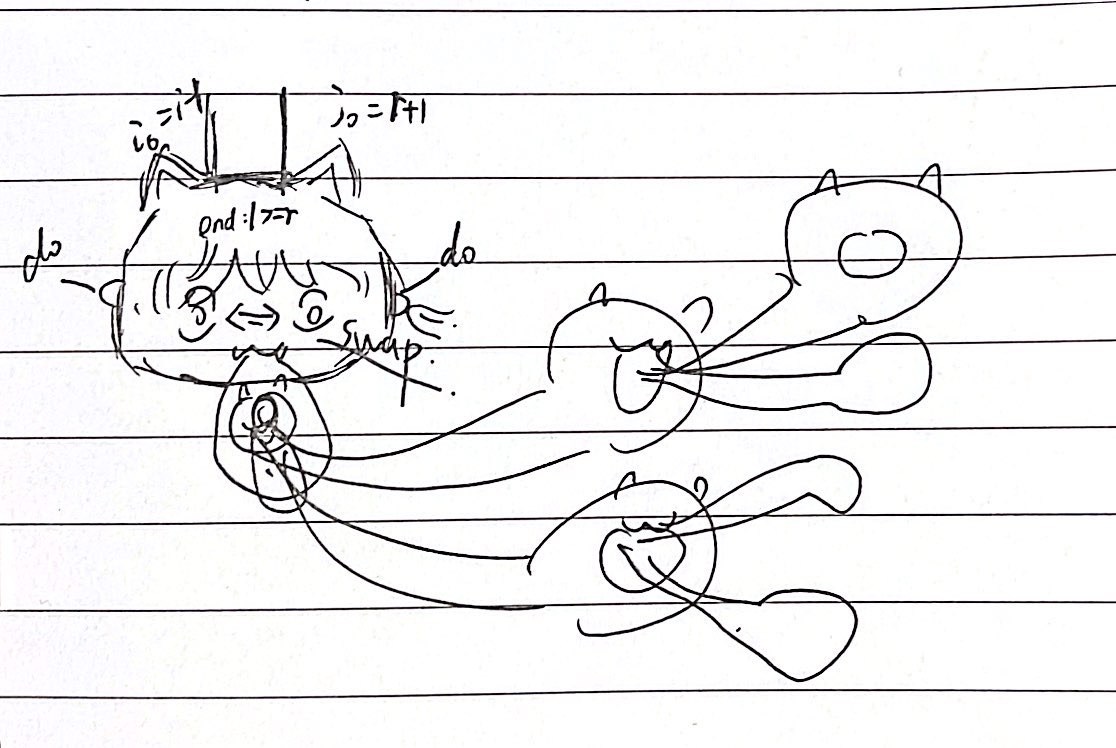 j₀ = r+1
end: l >= r
do
do
swap.